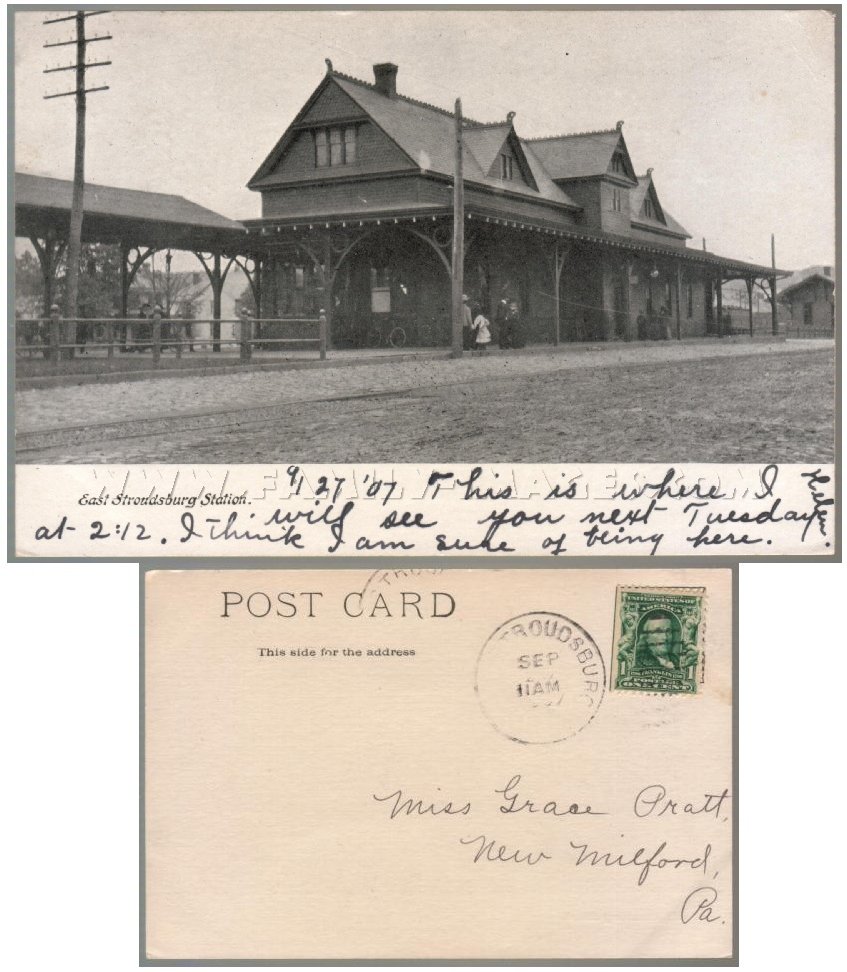 WWW.FAMILYIMAGES.COM
East Stroudsburg Station.
9/27 '07 This is where I
will see you next Tuesday
at 2:12. I think I am sure of being here.
Helen.
POST CARD
This side for the address
STROUDSBURG
SEP
11 AM
UNITED STATES OF
AMERICA
1 FRANKLIN 1
POSTAGE
ONE CENT
Miss Grace Pratt,
New Milford,
Pa.